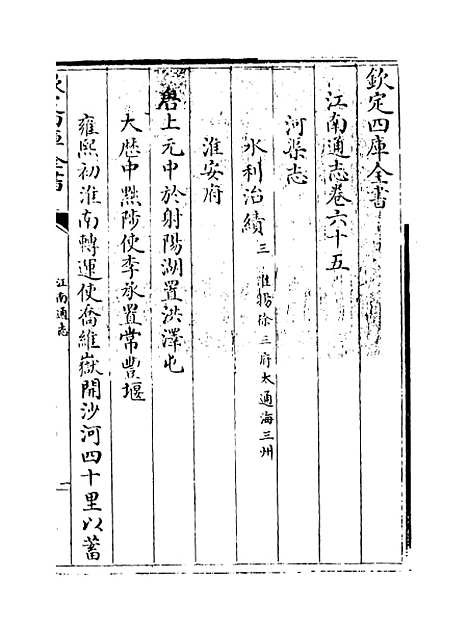 欽定四庫全書
江南通志卷六十五
河渠志
水利治績三 淮揚徐三府太通海三州
淮安府
唐上元中於射陽湖置洪澤屯
大歴中黜陟使李承置常豐堰
雍熙初淮南轉運使喬維嶽開沙河四十里以蓄
江南通志